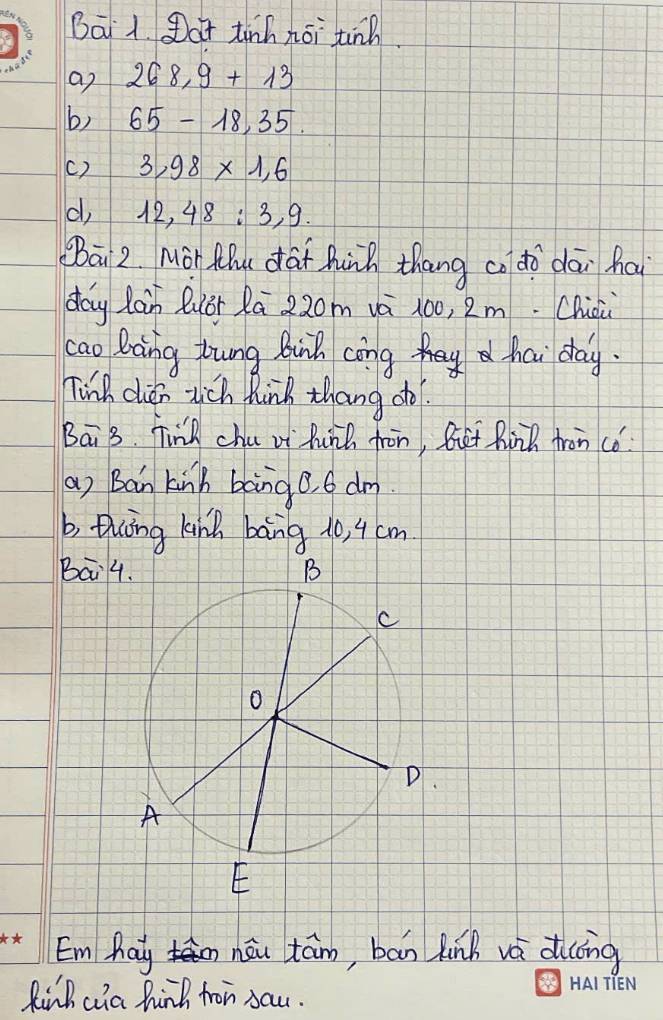 Bài 1. Đặt tính rồi tính.
a) 268,9 + 13
b) 65 - 18,35.
c) 3,98 × 1,6
d) 12,48 : 3,9.
Bài 2. Một khu đất hình thang có độ dài hai
đáy lần lượt là 220m và 100,2m. Chiều
cao bằng trung bình cộng hai đáy.
Tính diện tích hình thang đó.
Bài 3. Tính chu vi hình tròn, biết hình tròn có:
a) Bán kính bằng 0,6 dm.
b, Đường kính bằng 10,4 cm.
Bài 4.
B
C
O
D.
A
E
Em hãy nêu tâm, bán kính và đường
kính của hình tròn sau.
HẢI TIẾN